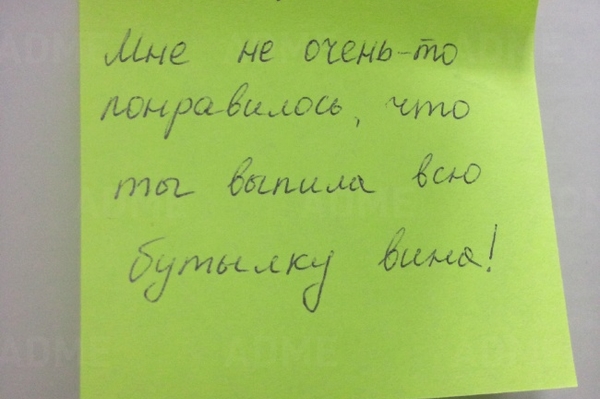 Мне не очень-то
понравилось, что
ты выпила всю
бутылку вина!
ADME
ADME
ADME
ADME
ADME
ADME